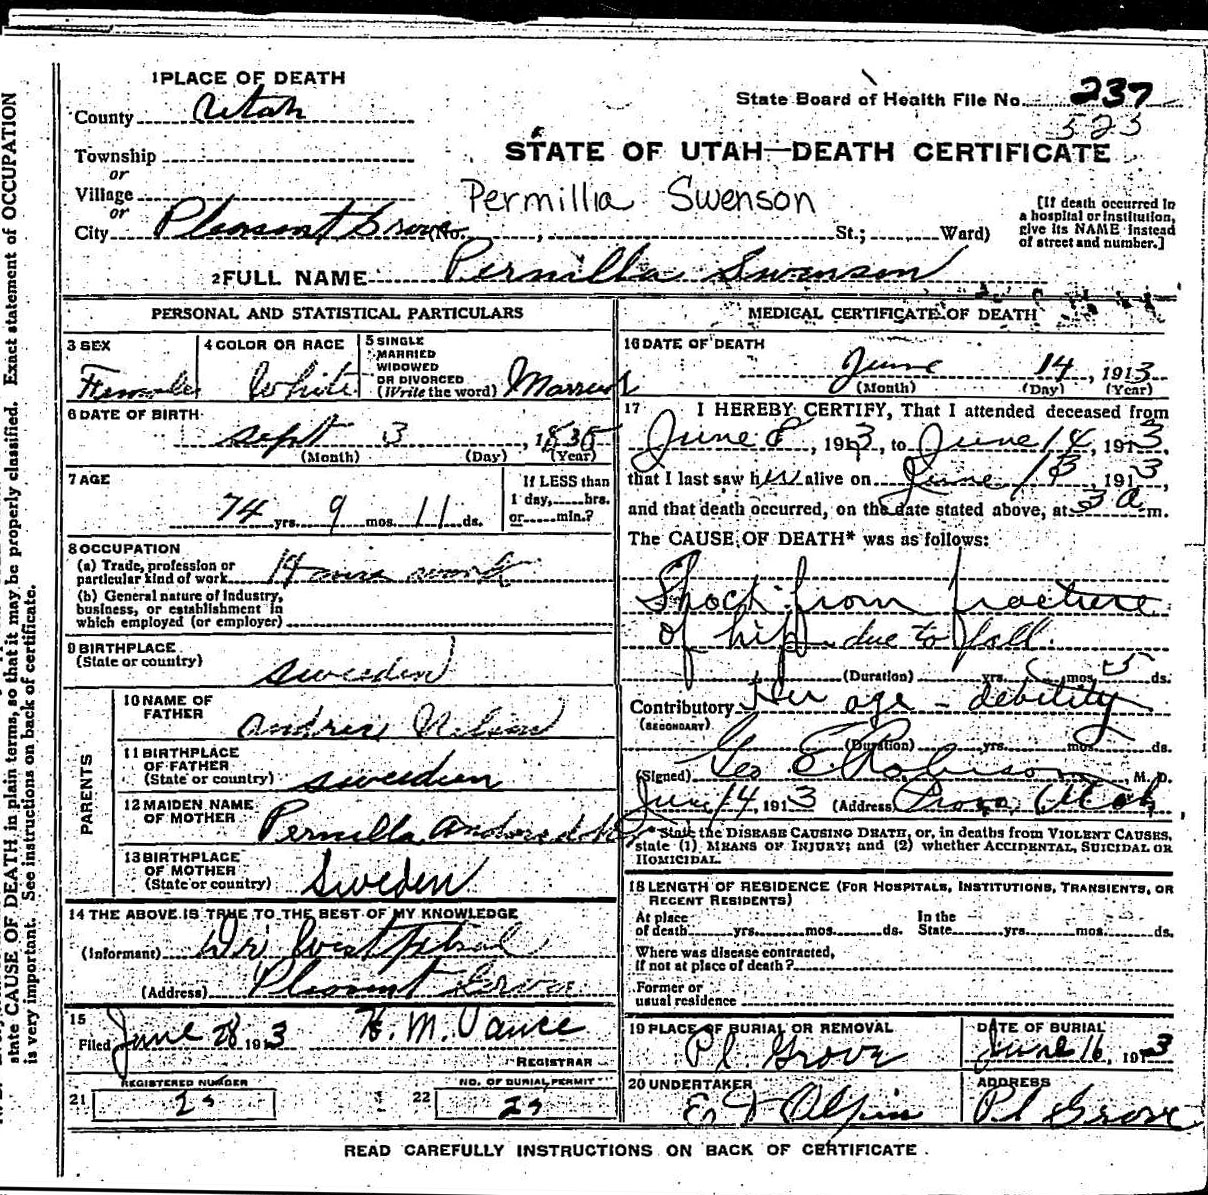 state CAUSE OF DEATH in plain terms, so that it may be properly classified. Exact statement of OCCUPATION
is very important. See instructions on back of certificate.
1 PLACE OF DEATH
County Utah
State Board of Health File No. 237
523
Township
or
STATE OF UTAH—DEATH CERTIFICATE
Village
or
Permillia Swenson
City Pleasant Grove (No. , St.; Ward)
[If death occurred in
a hospital or institution,
give its NAME instead
of street and number.]
2 FULL NAME Pernilla Swenson
PERSONAL AND STATISTICAL PARTICULARS
3 SEX
Female
4 COLOR OR RACE
White
5 SINGLE
MARRIED
WIDOWED
OR DIVORCED
(Write the word) Married
6 DATE OF BIRTH
Sept 3, 1835
(Month) (Day) (Year)
7 AGE
74 yrs. 9 mos. 11 ds.
If LESS than
1 day, hrs.
or min.?
8 OCCUPATION
(a) Trade, profession or
particular kind of work work
(b) General nature of Industry,
business, or establishment in
which employed (or employer)
9 BIRTHPLACE
(State or country)
Sweeden
PARENTS
10 NAME OF
FATHER
Andrew Nilson
11 BIRTHPLACE
OF FATHER
(State or country) Sweeden
12 MAIDEN NAME
OF MOTHER Pernilla
13 BIRTHPLACE
OF MOTHER
(State or country) Sweden
14 THE ABOVE IS TRUE TO THE BEST OF MY KNOWLEDGE
(Informant)
(Address) Pleasant Grove
15
Filed June 28 1913 H. M. Vance
REGISTRAR
REGISTERED NUMBER
21
NO. OF BURIAL PERMIT
22
MEDICAL CERTIFICATE OF DEATH
16 DATE OF DEATH
June 14, 1913
(Month) (Day) (Year)
17 I HEREBY CERTIFY, That I attended deceased from
June 8, 1913, to June 14, 1913,
that I last saw her alive on June 13, 1913,
and that death occurred, on the date stated above, at 3 a m.
The CAUSE OF DEATH* was as follows:
Shock from fracture
of hip due to fall.
(Duration) yrs. mos. 5 ds.
Contributory Her age - debility
(SECONDARY)
(Duration) yrs. mos. ds.
(Signed) Geo E Robison, M. D.
June 14, 1913 (Address) Provo, Utah
* State the DISEASE CAUSING DEATH, or, in deaths from VIOLENT CAUSES,
state (1) MEANS OF INJURY; and (2) whether ACCIDENTAL, SUICIDAL OR
HOMICIDAL.
18 LENGTH OF RESIDENCE (FOR HOSPITALS, INSTITUTIONS, TRANSIENTS, OR
RECENT RESIDENTS)
At place
of death yrs. mos. ds.
In the
State yrs. mos. ds.
Where was disease contracted,
if not at place of death?
Former or
usual residence
19 PLACE OF BURIAL OR REMOVAL
Pl. Grove
DATE OF BURIAL
June 16, 1913
20 UNDERTAKER
ADDRESS
Pl Grove
READ CAREFULLY INSTRUCTIONS ON BACK OF CERTIFICATE.